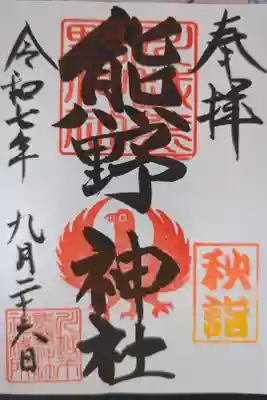 奉拝
熊野神社
秋詣
令和七年
九月二十六日